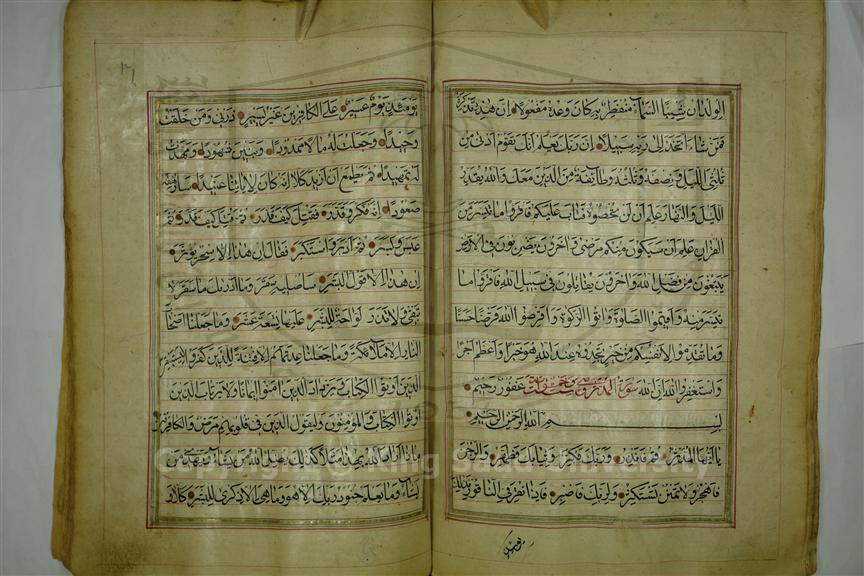 الولدان شيبا السماء منفطر به كان وعده مفعولا ان هذه تذكرة
فمن شاء اتخذ الى ربه سبيلا ان ربك يعلم انك تقوم ادنى من
ثلثي الليل ونصفه وثلثه وطائفة من الذين معك والله يقدر
الليل والنهار علم ان لن تحصوه فتاب عليكم فاقرؤا ما تيسر من
القران علم ان سيكون منكم مرضى واخرون يضربون في الارض
يبتغون من فضل الله واخرون يقاتلون في سبيل الله فاقرؤا ما
تيسر منه واقيموا الصلوة واتوا الزكوة واقرضوا الله قرضا حسنا
وما تقدموا لانفسكم من خير تجدوه عند الله هو خيرا واعظم اجرا
واستغفروا الله ان الله غفور رحيم سورة المدثر
بسم الله الرحمن الرحيم
يا ايها المدثر قم فانذر وربك فكبر وثيابك فطهر والرجز
فاهجر ولا تمنن تستكثر ولربك فاصبر فاذا نقر في الناقور فذلك
يومئذ يوم عسير على الكافرين غير يسير ذرني ومن خلقت
وحيدا وجعلت له مالا ممدودا وبنين شهودا ومهدت
له تمهيدا ثم يطمع ان ازيد كلا انه كان لاياتنا عنيدا سارهقه
صعودا انه فكر وقدر فقتل كيف قدر ثم قتل كيف قدر ثم نظر ثم
عبس وبسر ثم ادبر واستكبر فقال ان هذا الا سحر يؤثر
ان هذا الا قول البشر ساصليه سقر وما ادريك ما سقر لا
تبقي ولا تذر لواحة للبشر عليها تسعة عشر وما جعلنا اصحاب
النار الا ملائكة وما جعلنا عدتهم الا فتنة للذين كفروا ليستيقن
الذين اوتوا الكتاب ويزداد الذين امنوا ايمانا ولا يرتاب الذين
اوتوا الكتاب والمؤمنون وليقول الذين في قلوبهم مرض والكافرون
ماذا اراد الله بهذا مثلا كذلك يضل الله من يشاء ويهدي من
يشاء وما يعلم جنود ربك الا هو وما هي الا ذكرى للبشر كلا و